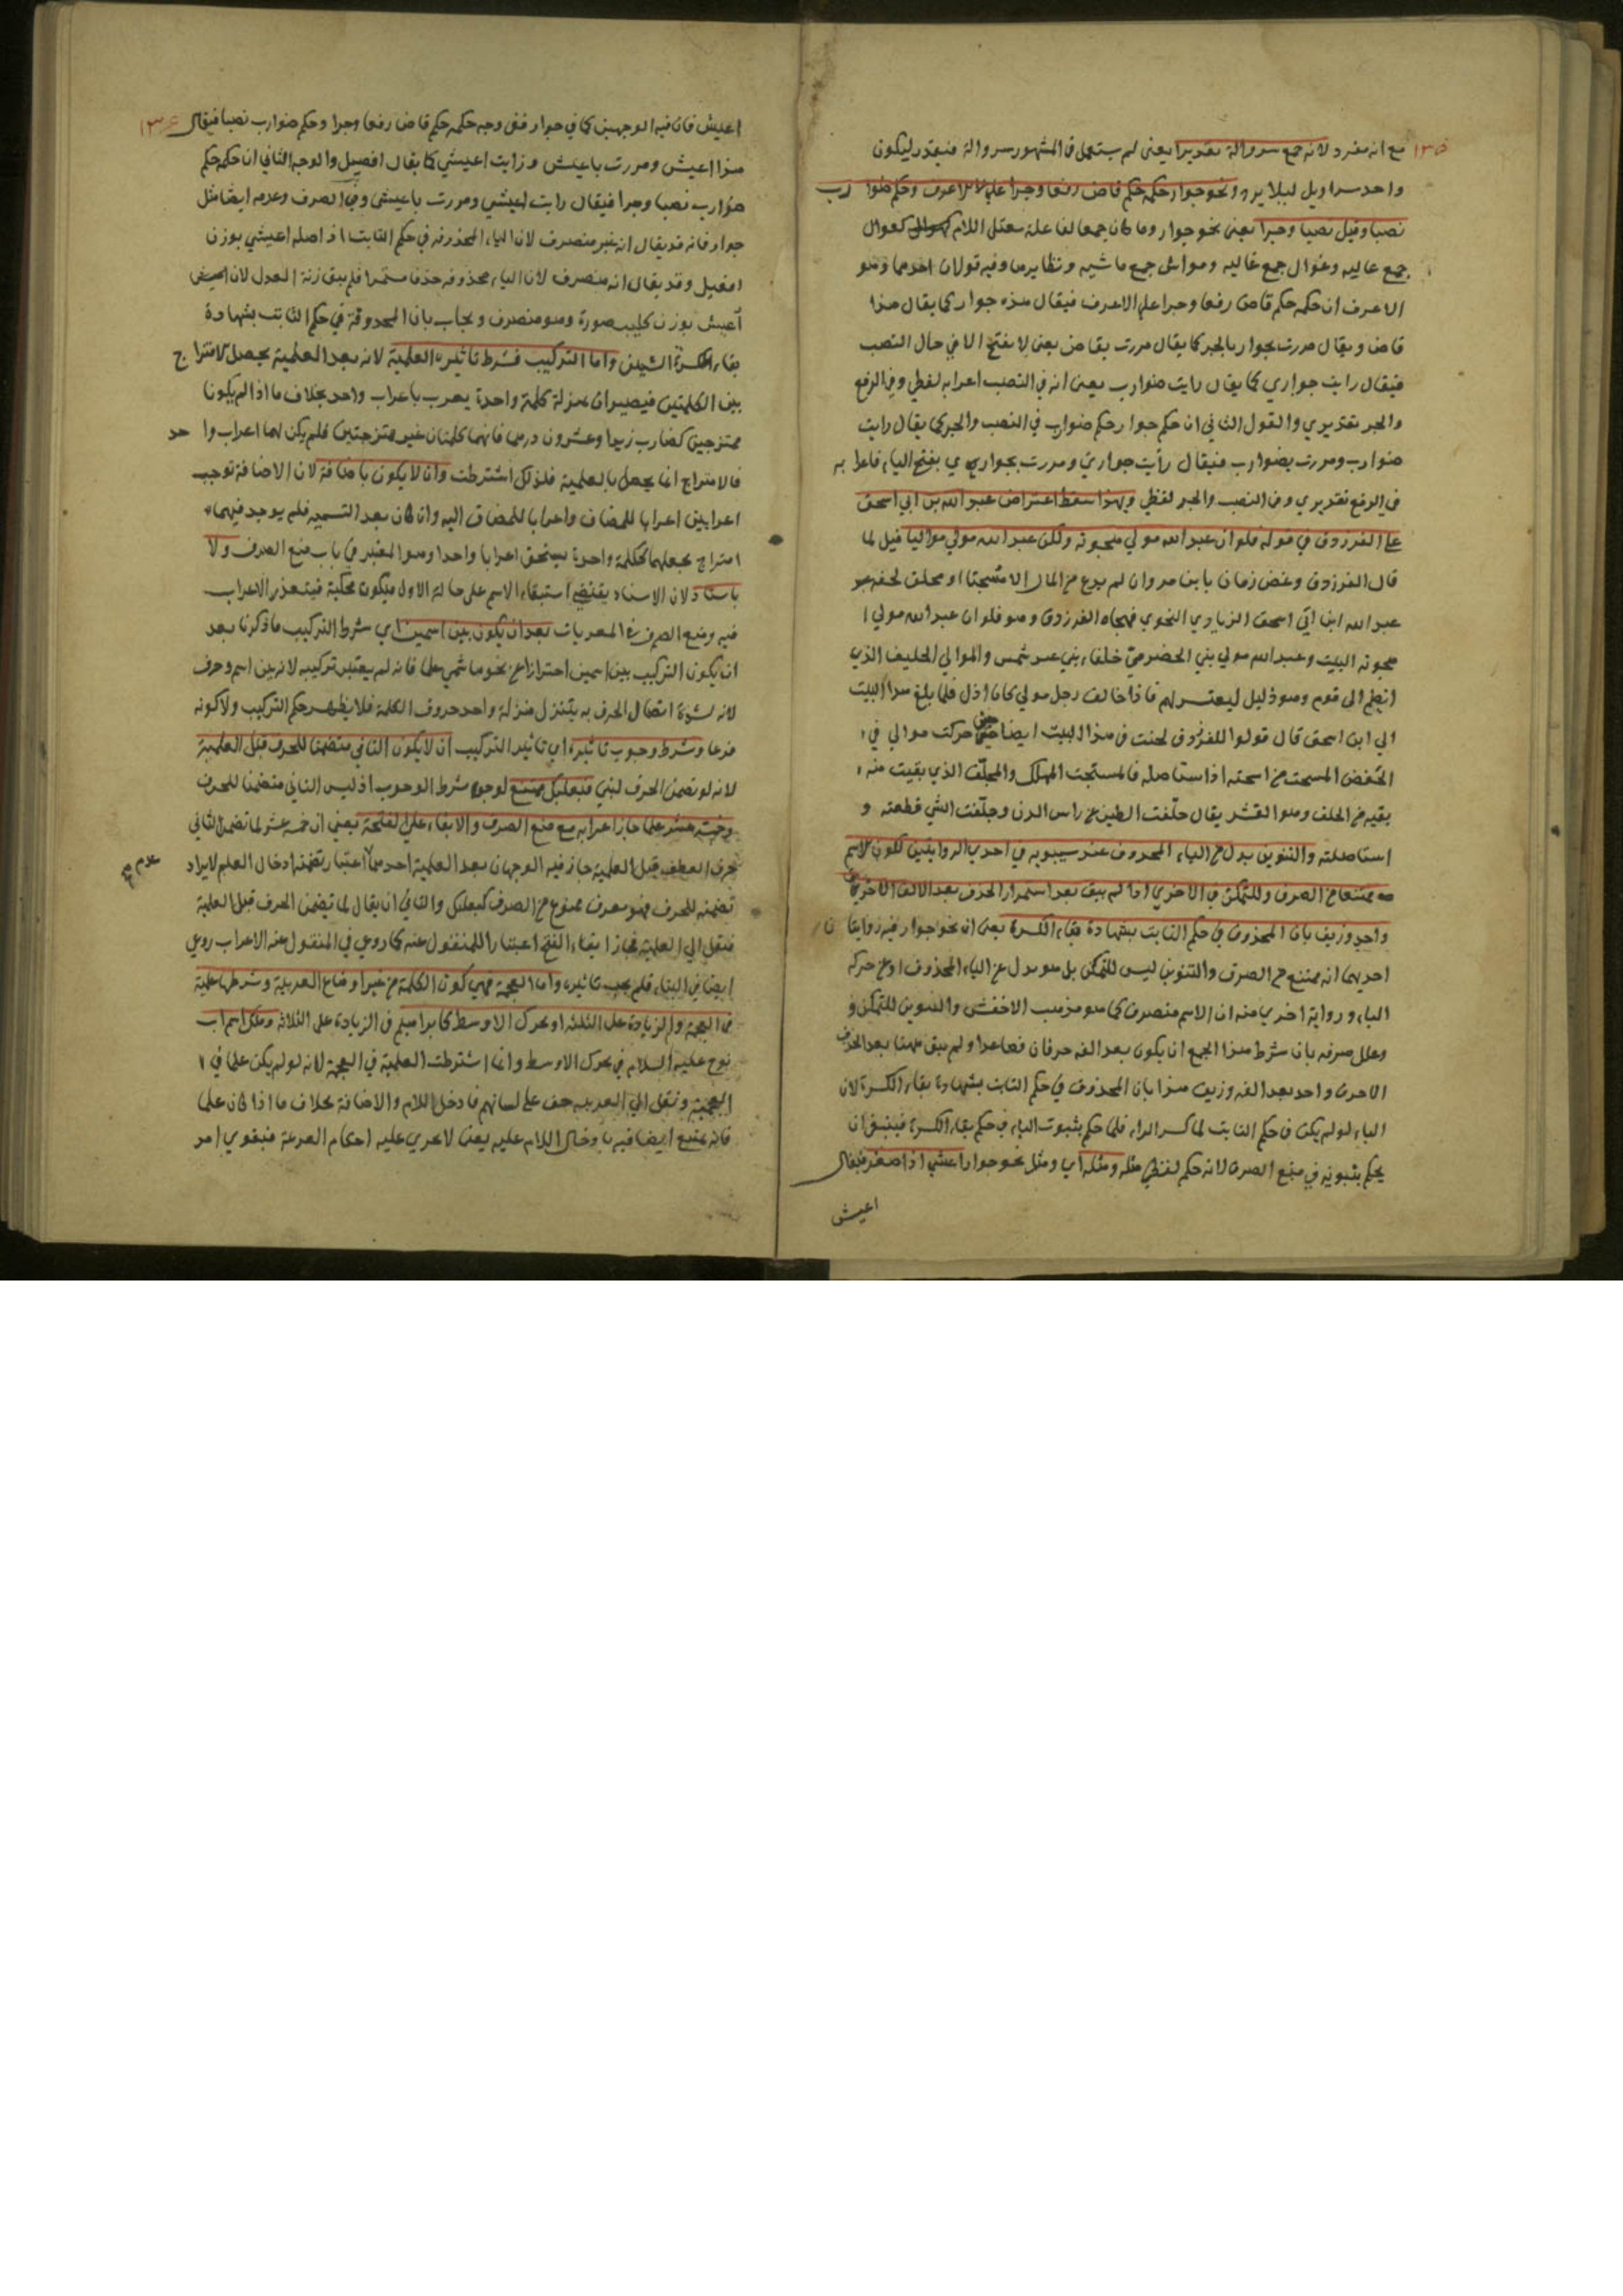 ١٣٥
مع انه مفرد لانه جمع سروالة تقديرا يعنى لم يستعمل في المشهور سروالة فيقدر ليكون
واحد سراويل ليلا يرد ونحو جوار حكمه حكم قاض رفعا وجرا على الاعرف وحكم ضوارب
نصبا وقيل نصبا وجرا يعنى نحو جوار وما كان جمعا لفاعلة معتل اللام كعوال
جمع عاليه وغوال جمع غاليه ومواش جمع ماشيه ونظايرها وفيه قولان احدهما وهو
الاعرف ان حكمه حكم قاض رفعا وجرا على الاعرف فيقال هذه جوار كما يقال هذا
قاض ويقال مررت بجوار بالجر كما يقال مررت بقاض يعنى لا يفتح الا في حال النصب
فيقال رايت جواري كما يقال رايت ضوارب يعنى انه في النصب اعرابه لفظي وفي الرفع
والجر تقديري والقول الثاني ان حكم جوار حكم ضوارب في النصب والجر كما يقال رايت
ضوارب ومررت بضوارب فيقال رأيت جواري ومررت بجواري بفتح الياء فاعرابه
في الرفع تقديري وفي النصب والجر لفظي وبهذا سقط اعتراض عبد الله بن ابي اسحق
على الفرزدق في قوله فلو ان عبد الله مولى هجوته ولكن عبد الله مولى مواليا قيل لما
قال الفرزدق وعض زمان يا بن مروان لم يدع من المال الا مسحتا او مجلف
عبد الله ابن ابي اسحق الزيادي النحوي فهجاه الفرزدق وهو فلو ان عبد الله مولى
هجوته البيت وعبد الله مولى بني الحضرمي خلفاء بني عبد شمس والموالي الحليف الذي
انضم الى قوم وهو ذليل ليعتز بهم فاذا حالف رجل مولى كان اذل فلما بلغ هذا البيت
الى ابن اسحق قال قولوا للفرزدق لحنت في هذا البيت ايضا حتى حركت موالي في
الخفض المسحت من اسحته اذا استاصله فالمستحت المهلك والمجلف الذي بقيت منه
بقيه من الجلف وهو القشر يقال جلفت الطين عن راس الدن وجلفت الشي قطعته و
استاصلته والتنوين بدل من الياء المحذوف عند سيبويه في احدى الروايتين لكون الاسم
ممتنعا من الصرف وللتمكن في الاخرى اذا لم يبق بعد استمرار الحذف بعد الالف الا حرف
واحد وزيف بان المحذوف في حكم الثابت بشهادة بقاء الكسرة يعنى ان نحو جوار فيه روايتان
احديهما انه ممتنع من الصرف والتنوين ليس للتمكن بل هو بدل عن الياء المحذوف او عن حركه
الياء ورواية اخرى منه ان الاسم منصرف كما هو مذهب الاخفش والتنوين للتمكن و
وعلل صرفه بان شرط هذا الجمع ان يكون بعد الفه حرفان فصاعدا ولم يبق ههنا بعد الحذف
الا حرف واحد بعد الفه وزيف هذا بان المحذوف في حكم الثابت بشهادة بقاء الكسرة لان
الياء لو لم يكن في حكم الثابت لما كسر الراء فلما حكم بثبوت الياء في حكم بقاء الكسرة فينبغي ان
يحكم بثبوته في منع الصرف لانه حكم لفظي مثله ومثله اي ومثل نحو جوار اعشى اذا صغر فيقال
اعيش
١٣٦
اعيش فان فيه الوجهين كما في جوار ففي وجه حكمه حكم قاض رفعا وجرا وحكم ضوارب نصبا فيقال
هذا اعيش ومررت باعيش ورايت اعيشي كما يقال افيصل والوجه الثاني ان حكمه حكم
ضوارب نصبا وجرا فيقال رايت اعيشي ومررت باعيشي وفي الصرف وعدمه ايضا مثل
جوار فانه قد يقال انه غير منصرف لان الياء المحذوفه في حكم الثابت اذ اصله اعيشي بوزن
افيعل وقد يقال انه منصرف لان الياء محذوفه حذفا مستمرا فلم يبق زنة الفعل لان اعيش
اعيش بوزن كليب صورة وهو منصرف ويجاب بان المحذوفة في حكم الثابت بشهادة
بقاء الكسرة الشين واما التركيب فشرط تاثيره العلمية لانه بعد العلمية يحصل الامتزاج
بين الكلمتين فيصيران بمنزلة كلمة واحدة يعرب باعراب واحد بخلاف ما اذا لم يكونا
ممتزجين كضارب زيدا وعشرون درهما فانهما كلمتان غير ممتزجتين فلم يكن لهما اعراب واحد
فالامتزاج انما يحصل بالعلمية فلذلك اشترطت وان لا يكون باضافة لان الاضافة توجب
اعرابين اعرابا للمضاف واعرابا للمضاف اليه وان كان بعد التسميه فلم يوجد فيهما
امتزاج يجعلهما ككلمة واحدة يستحق اعرابا واحدا وهو المعتبر في باب منع الصرف ولا
باسناد لان الاسناد يقتضي استبقاء الاسم على حالته الاول فيكون محكية فيتعذر الاعراب
فيه ومنع الصرف في المعربات بعد ان يكون بين اسمين اي شرط التركيب ما ذكرنا بعد
ان يكون التركيب بين اسمين احترازا عن نحو ما سمي علما فانه لم يعتبر تركيبه لانه بين اسم وحرف
لانه لشدة اتصال الحرف به يتنزل منزلة واحد حروف الكلمة فلا يظهر حكم التركيب ولا كونه
فرعا وشرط وجوب تاثيره اي تاثير التركيب ان لا يكون الثاني متضمنا للحرف قبل العلمية
لانه لو تضمن الحرف لبني فبعلبك ممتنع لوجود شرط الوجوب اذ ليس الثاني متضمنا للحرف
وخمسة عشر علما جاز اعرابه مع منع الصرف والابقاء على الفتحة يعنى ان خمسة عشر لما تضمن الثاني
حرف العطف قبل العلمية جاز فيه الوجهان بعد العلمية احدهما اعتبار تضمنه ادخال العلم لايراد
عدم
تضمنه للحرف فهو معرب ممنوع من الصرف كبعلبك والثاني ان يقال لما تضمن الحرف قبل العلمية
فنقل الى العلمية فجاز ابقاء الفتح اعتبارا للمنقول عنه كما روعي في المنقول عنه الاعراب روعي
ايضا في البناء فلم يجب تاثيره واما العجمة فهي كون الكلمة من غير اوضاع العربية وشرطها علمية
في العجمة والزيادة على الثلثة او تحرك الاوسط كابراهيم في الزيادة على الثلاثة وملك اسم اب
نوح عليه السلام في تحرك الاوسط وانما اشترطت العلمية في العجمة لانه لو لم يكن علما في
العجمية ونقل الى العربيه خف على لسانهم فادخل اللام والاضافة بخلاف ما اذا كان علما
فانه يمتنع ايضا فيه بادخال اللام عليه يعنى لا يجري عليه احكام الصرعة فيقوي امر